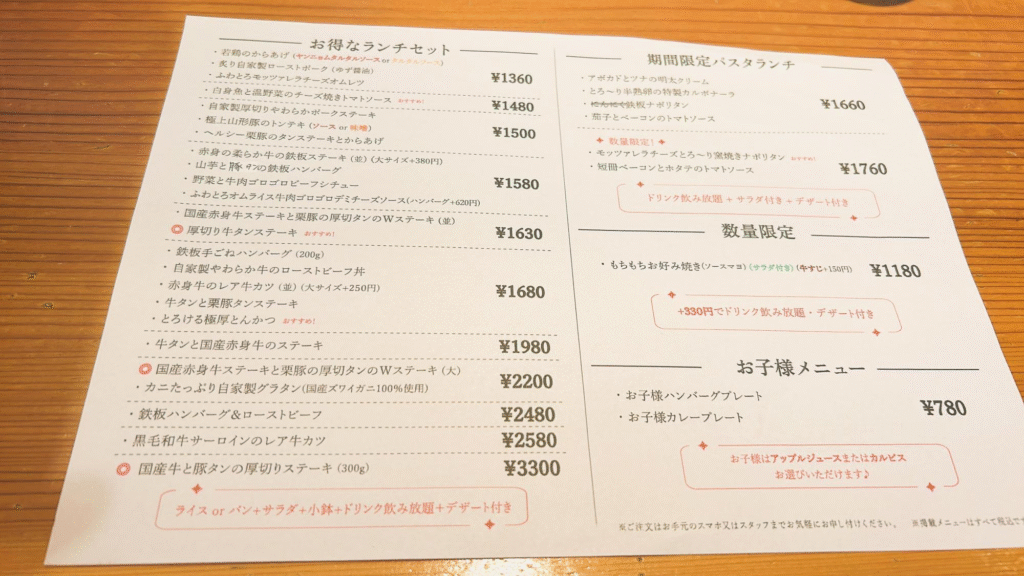 お得なランチセット
・若鶏のからあげ (ヤンニョムタルタルソース or タルタルソース)
・炙り自家製ローストポーク (ゆず醤油)
・ふわとろモッツァレラチーズオムレツ
¥1360
・白身魚と温野菜のチーズ焼きトマトソース おすすめ!
¥1480
・自家製厚切りやわらかポークステーキ
・極上山形豚のトンテキ (ソース or 味噌)
・ヘルシー栗豚のタンステーキとからあげ
¥1500
・赤身の柔らか牛の鉄板ステーキ (並) (大サイズ+380円)
・山芋と豚の鉄板ハンバーグ
・野菜と牛肉ゴロゴロビーフシチュー
・ふわとろオムライス牛肉ゴロゴロデミチーズソース(ハンバーグ+620円)
¥1580
・国産赤身牛ステーキと栗豚の厚切タンのWステーキ (並)
厚切り牛タンステーキ おすすめ!
¥1630
・鉄板手ごねハンバーグ (200g)
・自家製やわらか牛のローストビーフ丼
・赤身牛のレア牛カツ (並) (大サイズ+250円)
・牛タンと栗豚タンステーキ
・とろける極厚とんかつ おすすめ!
¥1680
・牛タンと国産赤身牛のステーキ
¥1980
国産赤身牛ステーキと栗豚の厚切タンのWステーキ (大)
・カニたっぷり自家製グラタン(国産ズワイガニ100%使用)
¥2200
・鉄板ハンバーグ&ローストビーフ
¥2480
・黒毛和牛サーロインのレア牛カツ
¥2580
国産牛と豚タンの厚切りステーキ (300g)
¥3300
ライス or パン+サラダ+小鉢+ドリンク飲み放題+デザート付き
期間限定パスタランチ
・アボカドとツナの明太クリーム
・とろ〜り半熟卵の特製カルボナーラ
・にんにく鉄板ナポリタン
・茄子とベーコンのトマトソース
¥1660
数量限定!
・モッツァレラチーズとろ〜り窯焼きナポリタン おすすめ!
・短冊ベーコンとホタテのトマトソース
¥1760
ドリンク飲み放題 + サラダ付き + デザート付き
数量限定
・もちもちお好み焼き(ソースマヨ) (サラダ付き) (牛すじ+150円)
¥1180
+330円でドリンク飲み放題・デザート付き
お子様メニュー
・お子様ハンバーグプレート
・お子様カレープレート
¥780
お子様はアップルジュースまたはカルピス
お選びいただけます♪
※ご注文はお手元のスマホ又はスタッフまでお気軽にお申し付けください。 ※掲載メニューはすべて税込で